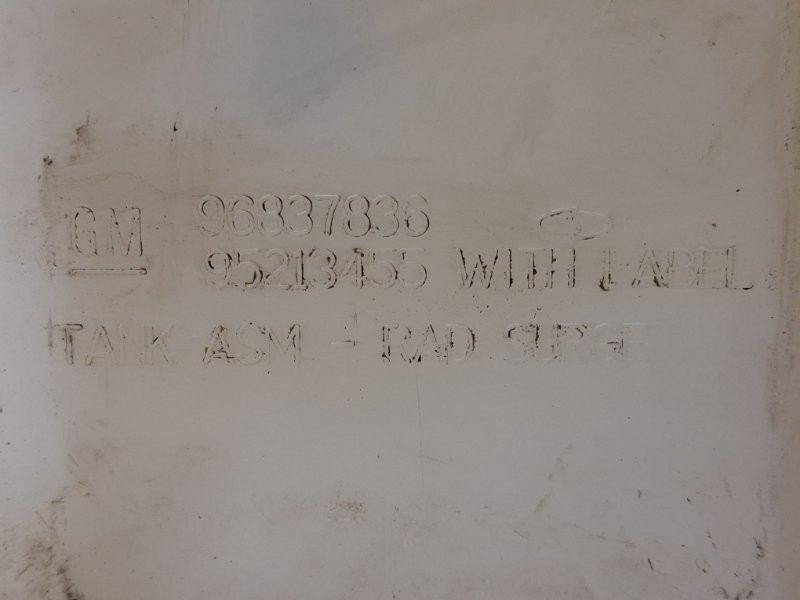 GM 96837836
95213455 WITH LABEL
TANK ASM - RAD SURGE